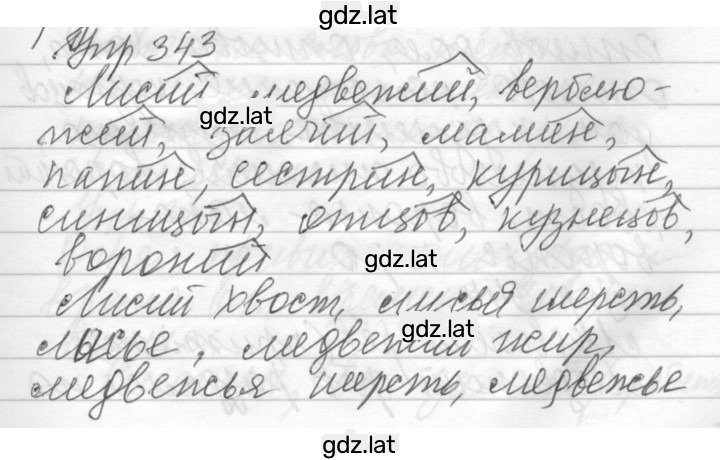 gdz.lat
Упр 343
Лисий медвежий, верблю-
gdz.lat
жий, заячий, мамин,
папин, сестрин, курицын,
синицын, отцов, кузнецов,
вороний
gdz.lat
Лисий хвост, лисья шерсть,
gdz.lat
лисье, медвежий жир,
медвежья шерсть, медвежье
gdz.lat